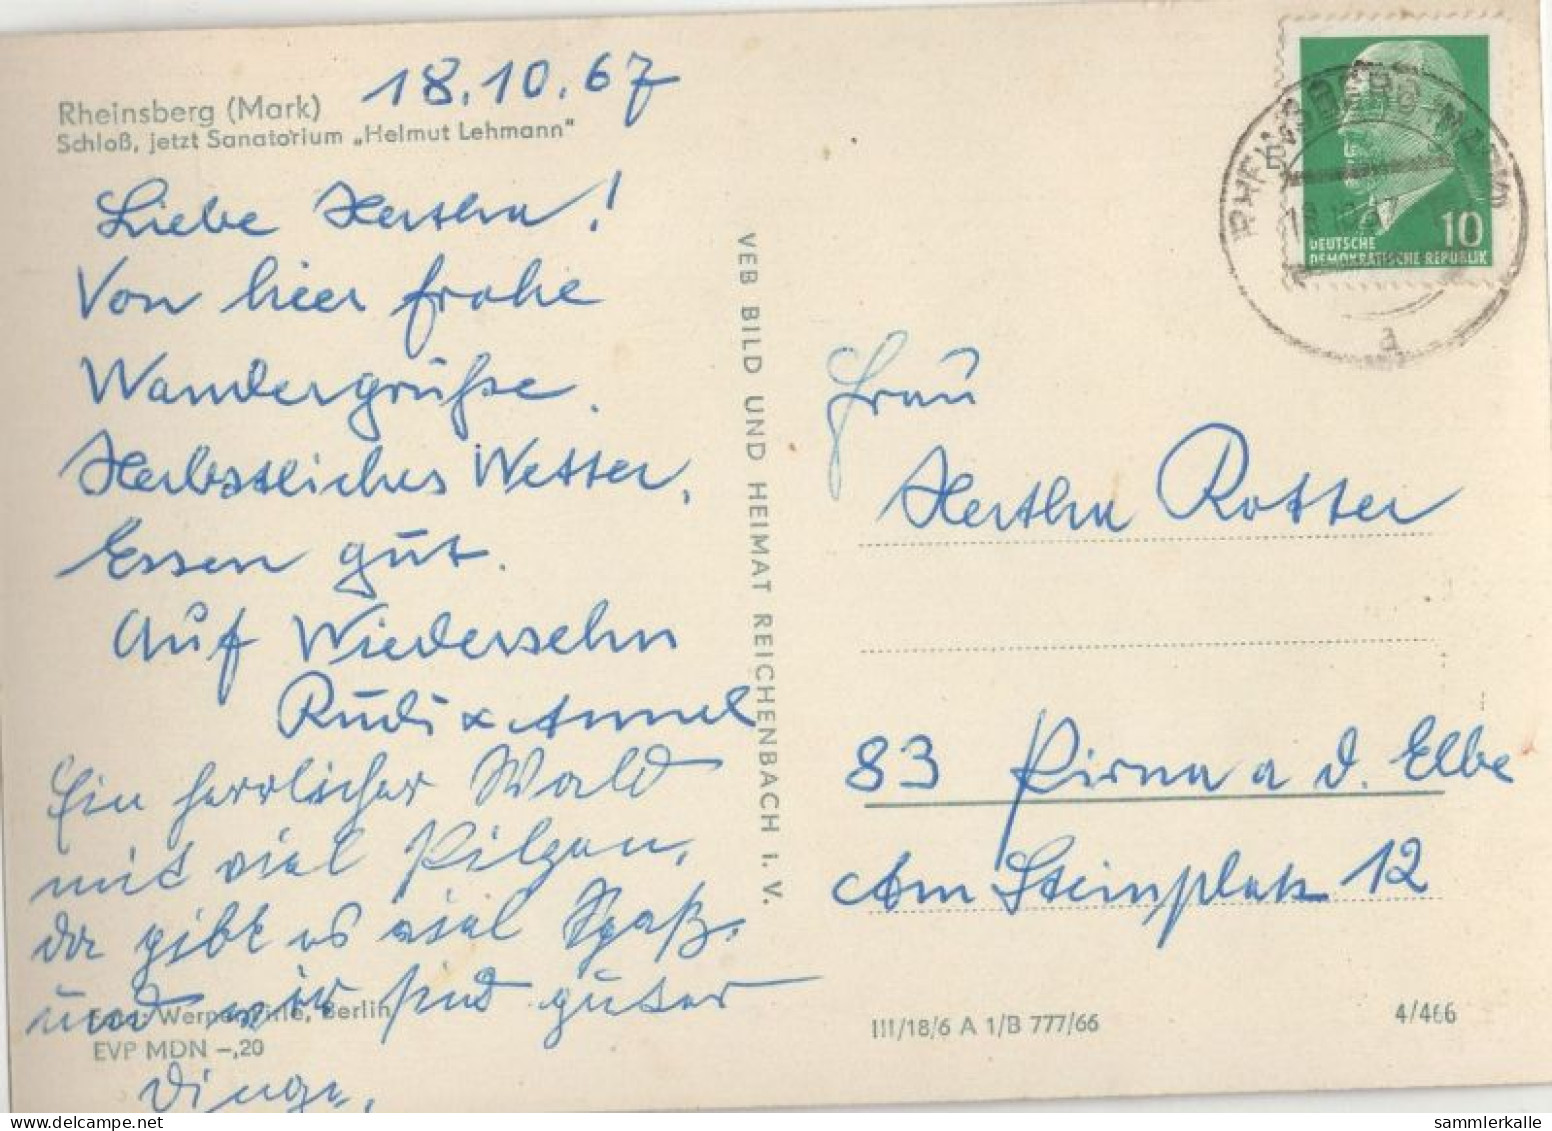 Rheinsberg (Mark)
Schloß, jetzt Sanatorium „Helmut Lehmann"
18.10.67
Liebe Hertha!
Von hier frohe
Wandergrüße.
Herbstliches Wetter,
Essen gut.
Auf Wiedersehn
Rudi & Annel
Ein herrlicher Wald
mit viel Pilzen,
da gibt es viel Spaß.
und wir sind guter
Dinge.
Foto: Werner Pirle, Berlin
EVP MDN –,20
VEB BILD UND HEIMAT REICHENBACH I. V.
10
DEUTSCHE
DEMOKRATISCHE REPUBLIK
RHEINSBERG (MARK)
18.10.67
a
Frau
Hertha Rotter
83 Pirna a d. Elbe
Am Steinplatz 12
III/18/6 A 1/B 777/66
4/466
sammlerkalle